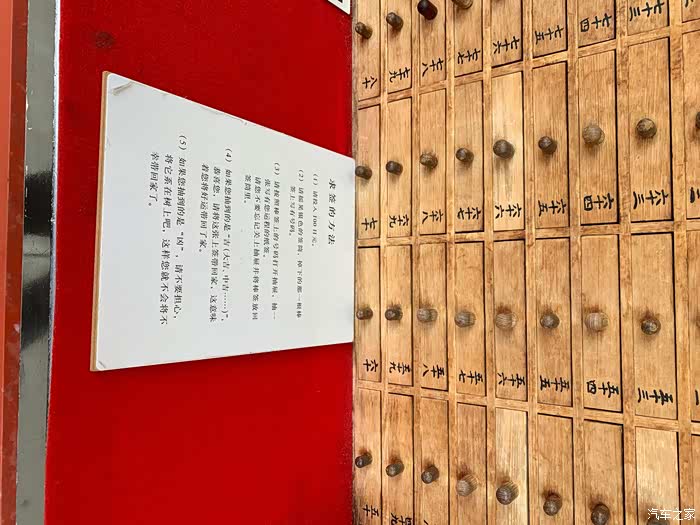 七十三
六十三
五十三
七十四
六十四
五十四
七十五
六十五
五十五
七十六
六十六
五十六
七十七
六十七
五十七
七十八
六十八
五十八
七十九
六十九
五十九
八十
七十
六十
求签的方法
(1) 请投入100日元。
(2) 请摇晃银色的签筒，掉下的那一根棒
签上写有号码。
(3) 请按照棒签上的号码打开抽屉，抽一
张写有您运程的纸签。
请您不要忘记关上抽屉并将棒签放回
签筒里。
(4) 如果您抽到的是“吉(大吉、中吉……)”，
恭喜您，请将这张上签带回家，这意味
着您将好运带回了家。
(5) 如果您抽到的是“凶”，请不要担心，
将它系在树上吧，这样您就不会将不
幸带回家了。
汽车之家